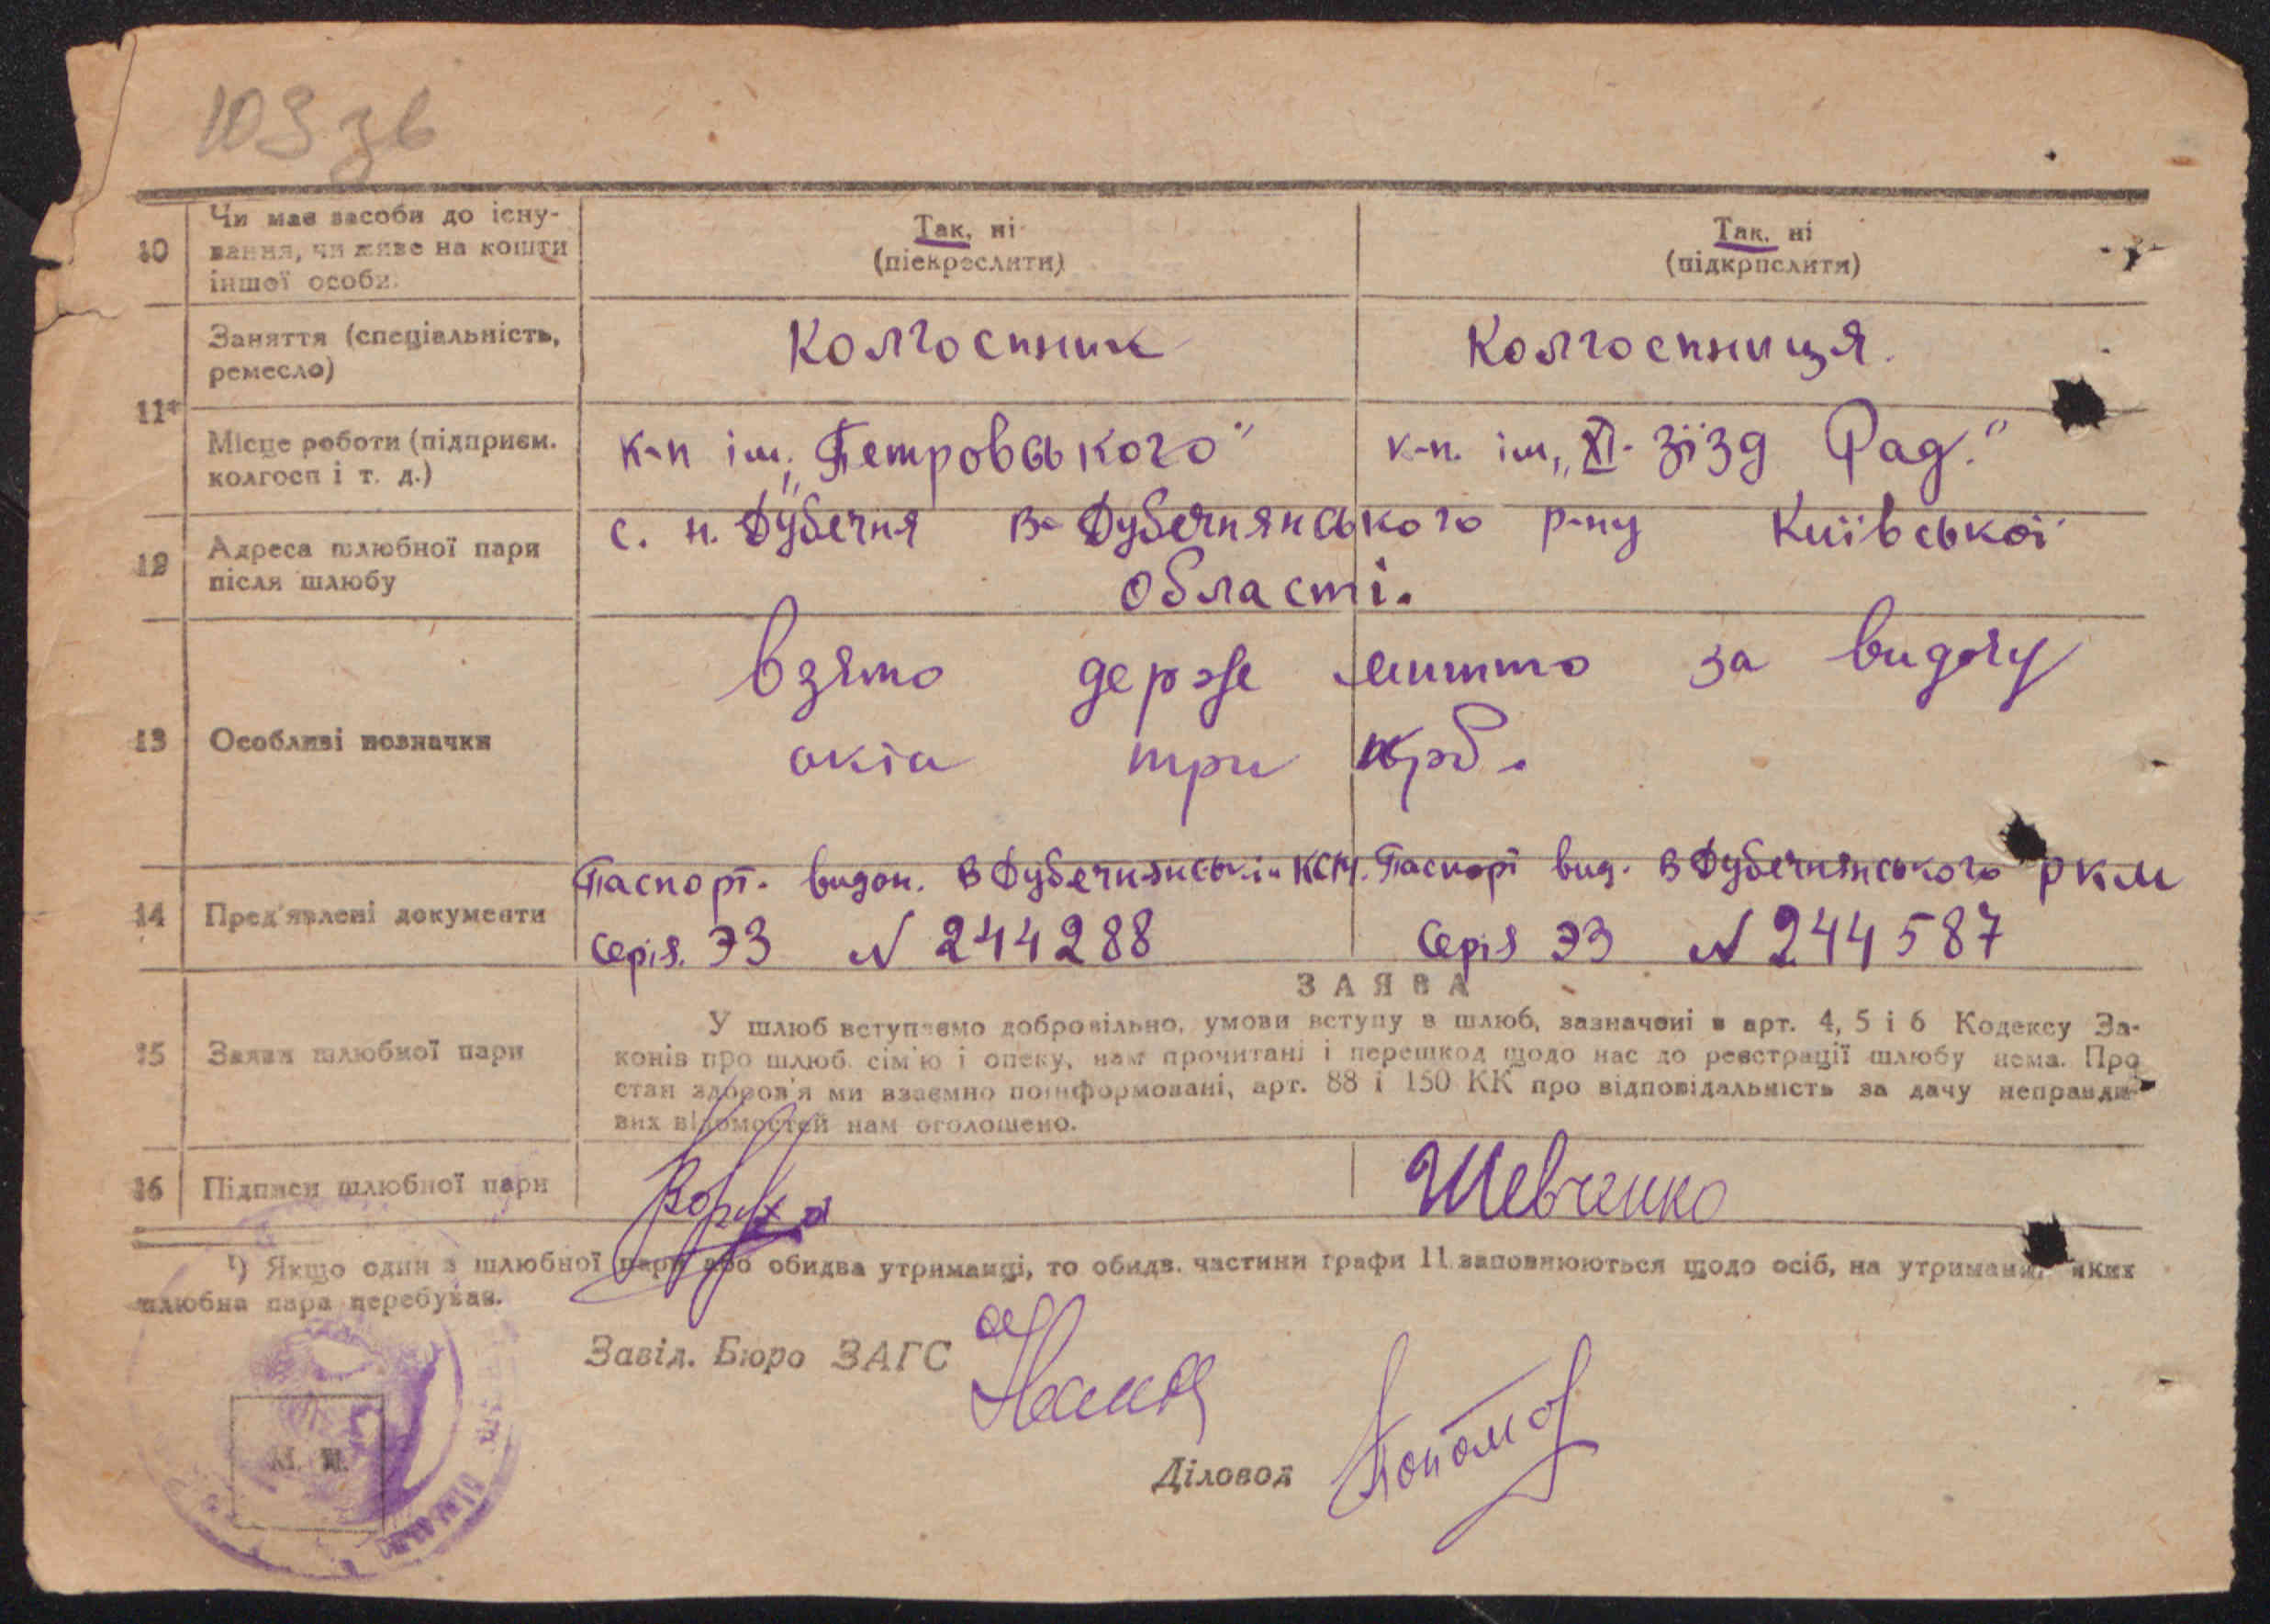 103 зв
10 Чи має засоби до існу-
вання, чи живе на кошти
іншої особи.
Так, ні
(піекреслити)
Так, ні
(підкрпслити)
11* Заняття (спеціальність,
ремесло)
Колгоспник
Колгоспниця.
Місце роботи (підприєм.
колгосп і т. д.)
к-п ім. „Петровського"
к-п. ім. „XI- зїзд Рад."
12 Адреса шлюбної пари
після шлюбу
с. н. Дубечня В-Дубечнянського р-ну Київської
області.
13 Особливі позначки
Взято держ мито за видачу
акта три крб.
14 Пред'явлені документи
Паспорт. видан. В Дубечнянські
Серія. ЭЗ N 244288
Паспорт вид. В Дубечнянського РКМ
Серія ЭЗ N 244587
15 Заява шлюбної пари
ЗАЯВА
У шлюб вступаємо добровільно, умови вступу в шлюб, зазначені в арт. 4, 5 і 6 Кодексу За-
конів про шлюб, сім'ю і опеку, нам прочитані і перешкод щодо нас до реєстрації шлюбу нема. Про
стан здоров'я ми взаємно поінформовані, арт. 88 і 150 КК про відповідальність за дачу неправди-
вих відомостей нам оголошено.
16 Підписи шлюбної пари
Шевченко
¹) Якщо один з шлюбної пари або обидва утриманці, то обидв. частини графи 11 заповнюються щодо осіб, на утриманні яких
шлюбна пара перебуває.
Завід. Бюро ЗАГС
Діловод
М. П.